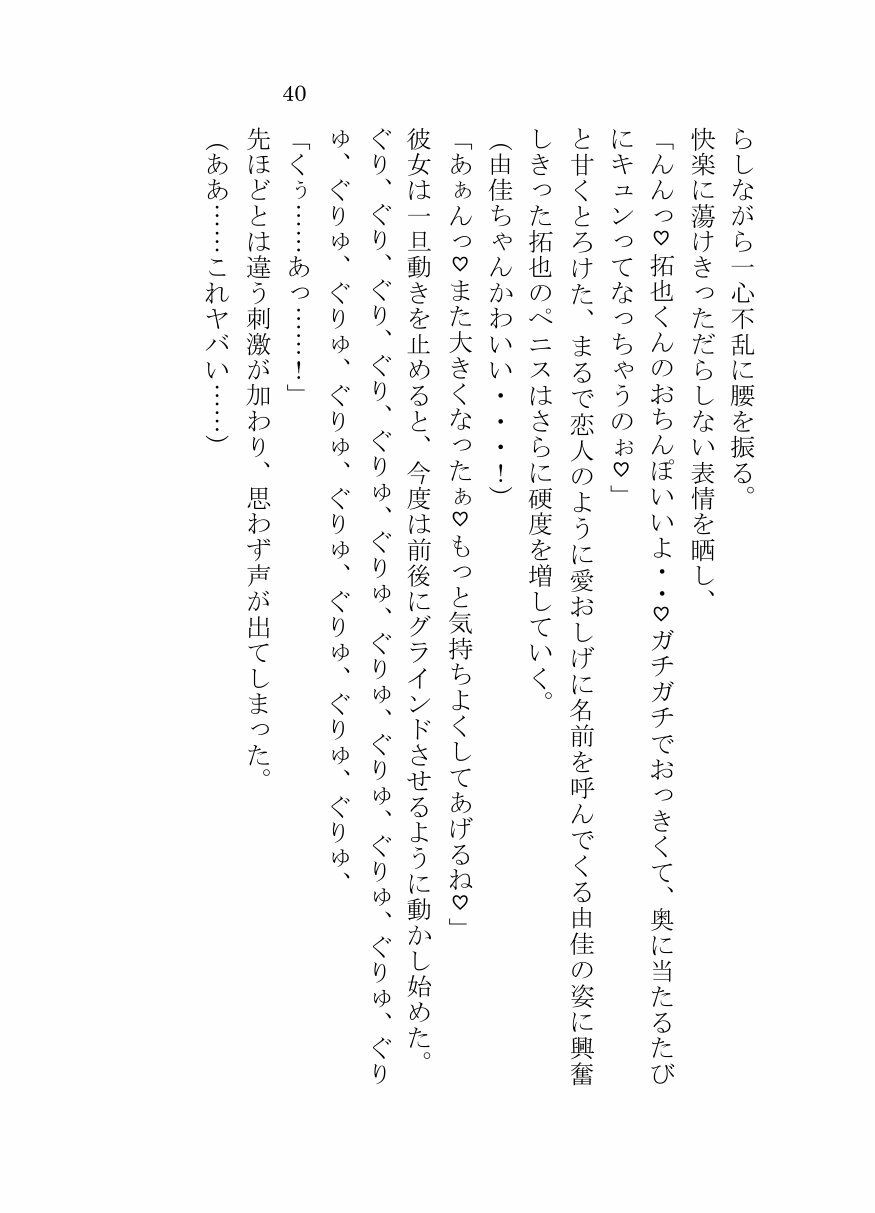 40
らしながら一心不乱に腰を振る。
快楽に蕩けきっただらしない表情を晒し、
「んんっ♡拓也くんのおちんぽいいよ・・♡ガチガチでおっきくて、奥に当たるたび
にキュンってなっちゃうのぉ♡」
と甘くとろけた、まるで恋人のように愛おしげに名前を呼んでくる由佳の姿に興奮
しきった拓也のペニスはさらに硬度を増していく。
（由佳ちゃんかわいい・・・！）
「あぁんっ♡また大きくなったぁ♡もっと気持ちよくしてあげるね♡」
彼女は一旦動きを止めると、今度は前後にグラインドさせるように動かし始めた。
ぐり、ぐり、ぐり、ぐり、ぐりゅ、ぐりゅ、ぐりゅ、ぐりゅ、ぐりゅ、ぐりゅ、ぐり
ゅ、ぐりゅ、ぐりゅ、ぐりゅ、ぐりゅ、ぐりゅ、ぐりゅ、ぐりゅ、
「くぅ……あっ……！」
先ほどとは違う刺激が加わり、思わず声が出てしまった。
（ああ……これヤバい……）